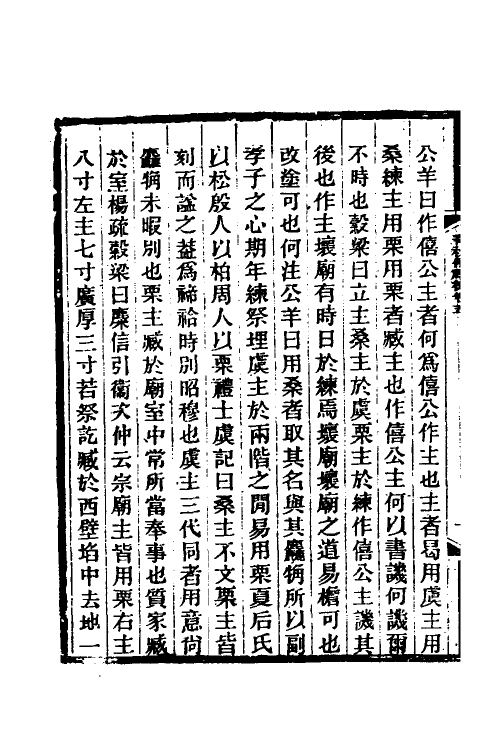 公羊曰作僖公主者何爲僖公作主也主者曷用虞主用
桑練主用栗用栗者藏主也作僖公主何以書譏何譏爾
不時也穀梁曰立主喪主於虞栗主於練作僖公主譏其
後也作主壞廟有時日於練焉壞廟壞廟之道易檐可也
改塗可也何注公羊曰用桑者取其名與其麤觕所以副
孝子之心期年練祭埋虞主於兩階之閒易用栗夏后氏
以松殷人以柏周人以栗禮士虞記曰桑主不文栗主皆
刻而諡之葢爲禘祫時別昭穆也虞主三代同者用意尙
麤觕未暇別也栗主藏於廟室中常所當奉事也質家藏
於室楊疏穀梁曰麋信引衞次仲云宗廟主皆用栗右主
八寸左主七寸廣厚三寸若祭訖藏於西壁埳中去地一